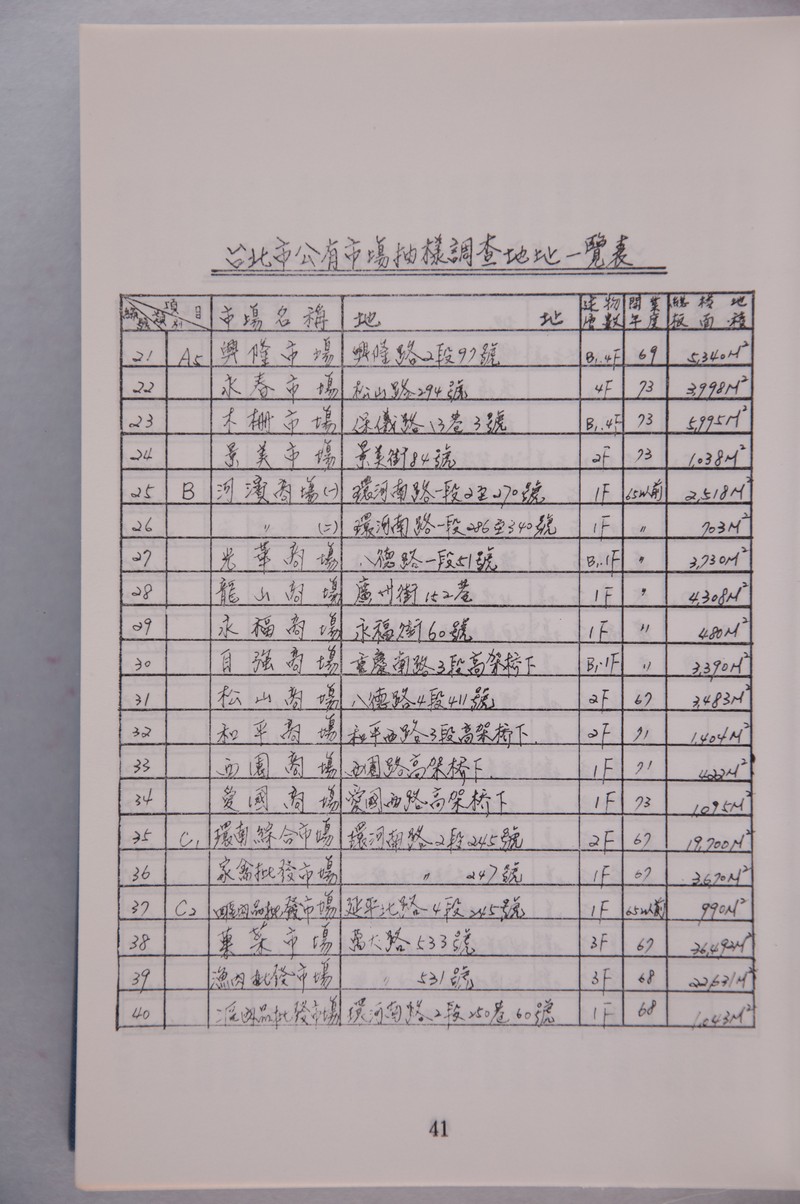 台北市公有市場抽樣調查地址一覽表
編號 類別 項目 市場名稱 地址 建物層數 開業年度 總樓地板面積
21 A5 興隆市場 興隆路2段97號 B1.4F 69 5,340M²
22 永春市場 松山路294號 4F 73 3,998M²
23 木柵市場 保儀路13巷3號 B1.4F 73 5,995M²
24 景美市場 景美街84號 2F 73 1,038M²
25 B 河濱商場(一) 環河南路一段2至270號 1F 65以前 2,518M²
26 〃 (二) 環河南路一段286至340號 1F 〃 703M²
27 光華商場 八德路一段51號 B1.1F 〃 3,730M²
28 龍山商場 廣州街152巷 1F 〃 4,308M²
29 永福商場 永福街60號 1F 〃 480M²
30 自強商場 重慶南路3段高架橋下 B1.1F 〃 3,390M²
31 松山商場 八德路4段411號 2F 67 3,483M²
32 和平商場 和平西路3段高架橋下. 2F 71 1,404M²
33 西園商場 西園路高架橋下. 1F 71 422M²
34 愛國商場 愛國西路高架橋下 1F 73 1,095M²
35 C1 環南綜合市場 環河南路2段245號 2F 67 19,700M²
36 家禽批發市場 〃 247號 1F 67 3,670M²
37 C2 批發市場 延平北路4段245號 1F 65以前 990M²
38 菓菜市場 萬大路533號 3F 67 36,492M²
39 批發市場 〃 531號 3F 68 22,631M²
40 品批發市場 環河南路2段250巷60號 1F 68 1,043M²
41